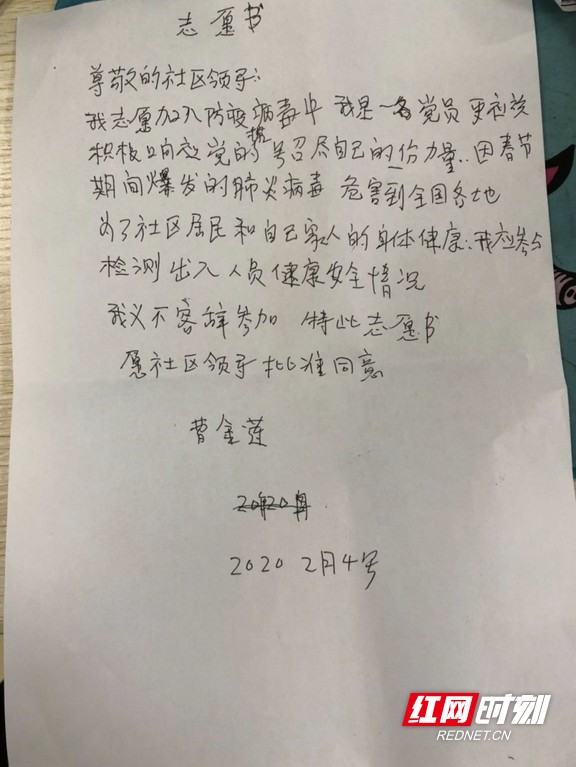 志愿书
尊敬的社区领导:
我志愿加入防疫病毒中 我是一名党员 更应该
积极响应党的号召尽自己的一份力量..因春节
期间爆发的肺炎病毒 危害到全国各地
为了社区居民和自己家人的身体健康:我应参与
检测出入人员健康安全情况
我义不容辞参加 特此志愿书
愿社区领导批准同意
曹金莲
2020 2月4号
红网时刻
REDNET.CN